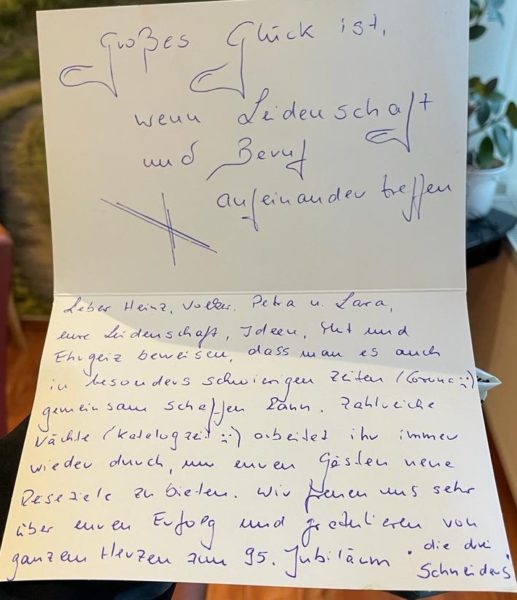 Großes Glück ist,
wenn Leidenschaft
und Beruf
aufeinander treffen
Lieber Heinz, Volker, Petra u. Lara,
eure Leidenschaft, Ideen, Mut und
Ehrgeiz beweisen, dass man es auch
in besonders schwierigen Zeiten (Corona :-)
gemeinsam schaffen kann. Zahlreiche
Nächte (Katalogzeit :-) arbeitet ihr immer
wieder durch, um euren Gästen neue
Reseziele zu bieten. Wir freuen uns sehr
über euren Erfolg und gratulieren von
ganzem Herzen zum 95. Jubiläum · die drei
Schneiders